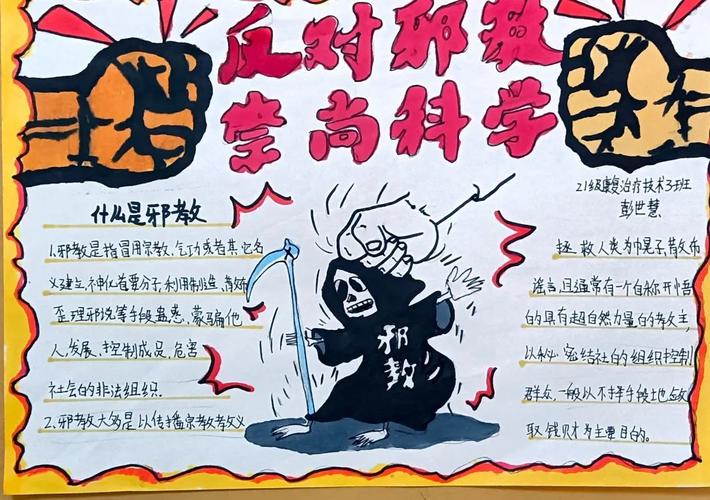 反对邪教
崇尚科学
什么是邪教
1.邪教是指冒用宗教、气功或者其它名
义建立、神化首要分子,利用制造、散布
歪理邪说等手段蛊惑、蒙骗他
人,发展、控制成员,危害
社会的非法组织。
2、邪教大多是以传播宗教教义
邪
教
21级康复治疗技术3班
彭世慧
拯救人类为幌子,散布
谣言,且通常有一个自称开悟
的具有超自然力量的教主,
以秘密结社的组织控制
群众,一般以不择手段地敛
取钱财为主要目的。